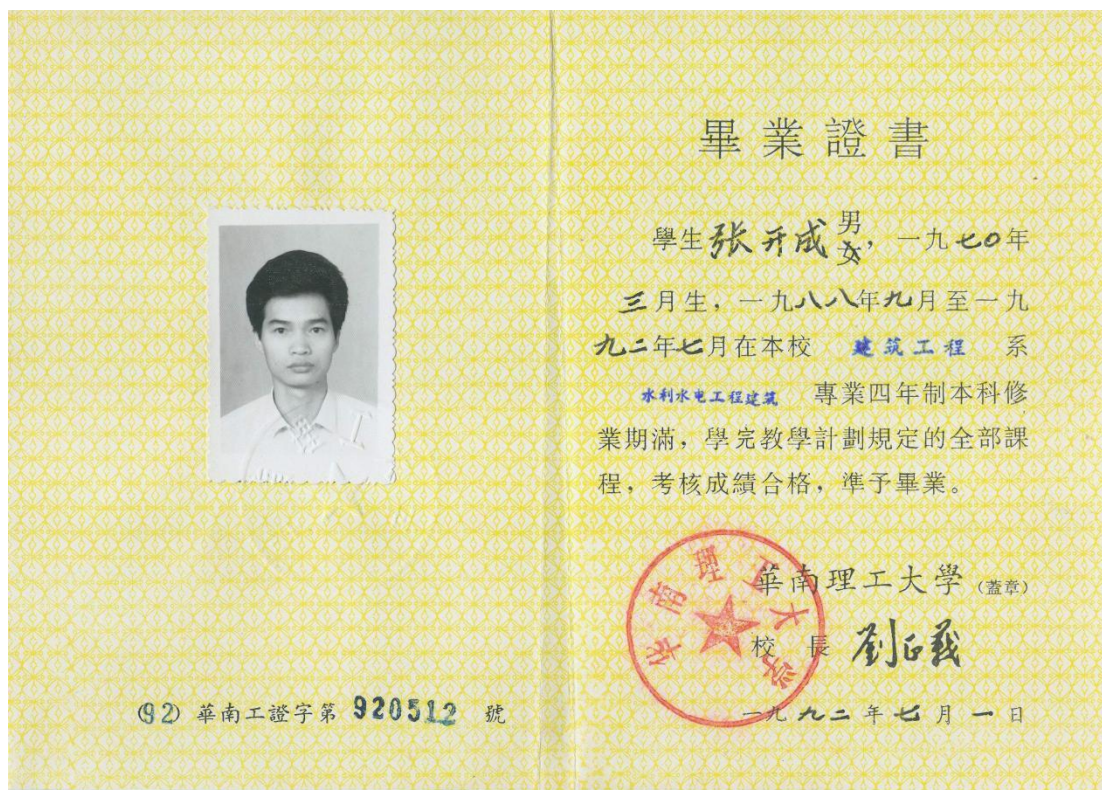 畢業證書
學生张开成男女，一九七〇年
三月生，一九八八年九月至一九
九二年七月在本校 建筑工程 系
水利水电工程建筑 專業四年制本科修
業期滿，學完教學計劃規定的全部課
程，考核成績合格，準予畢業。
华南理工大学
華南理工大學（蓋章）
校長 劉正義
一九九二年七月一日
(92) 華南工證字第 920512 號